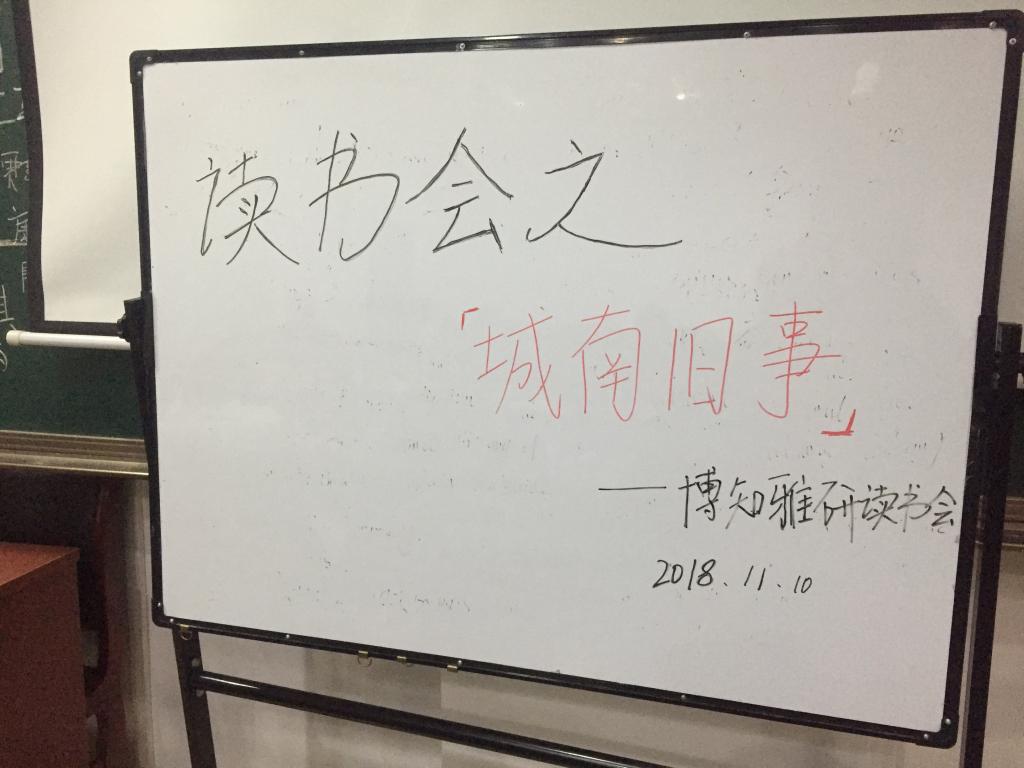 读书会之
「城南旧事」
——博知雅研读书会
2018.11.10